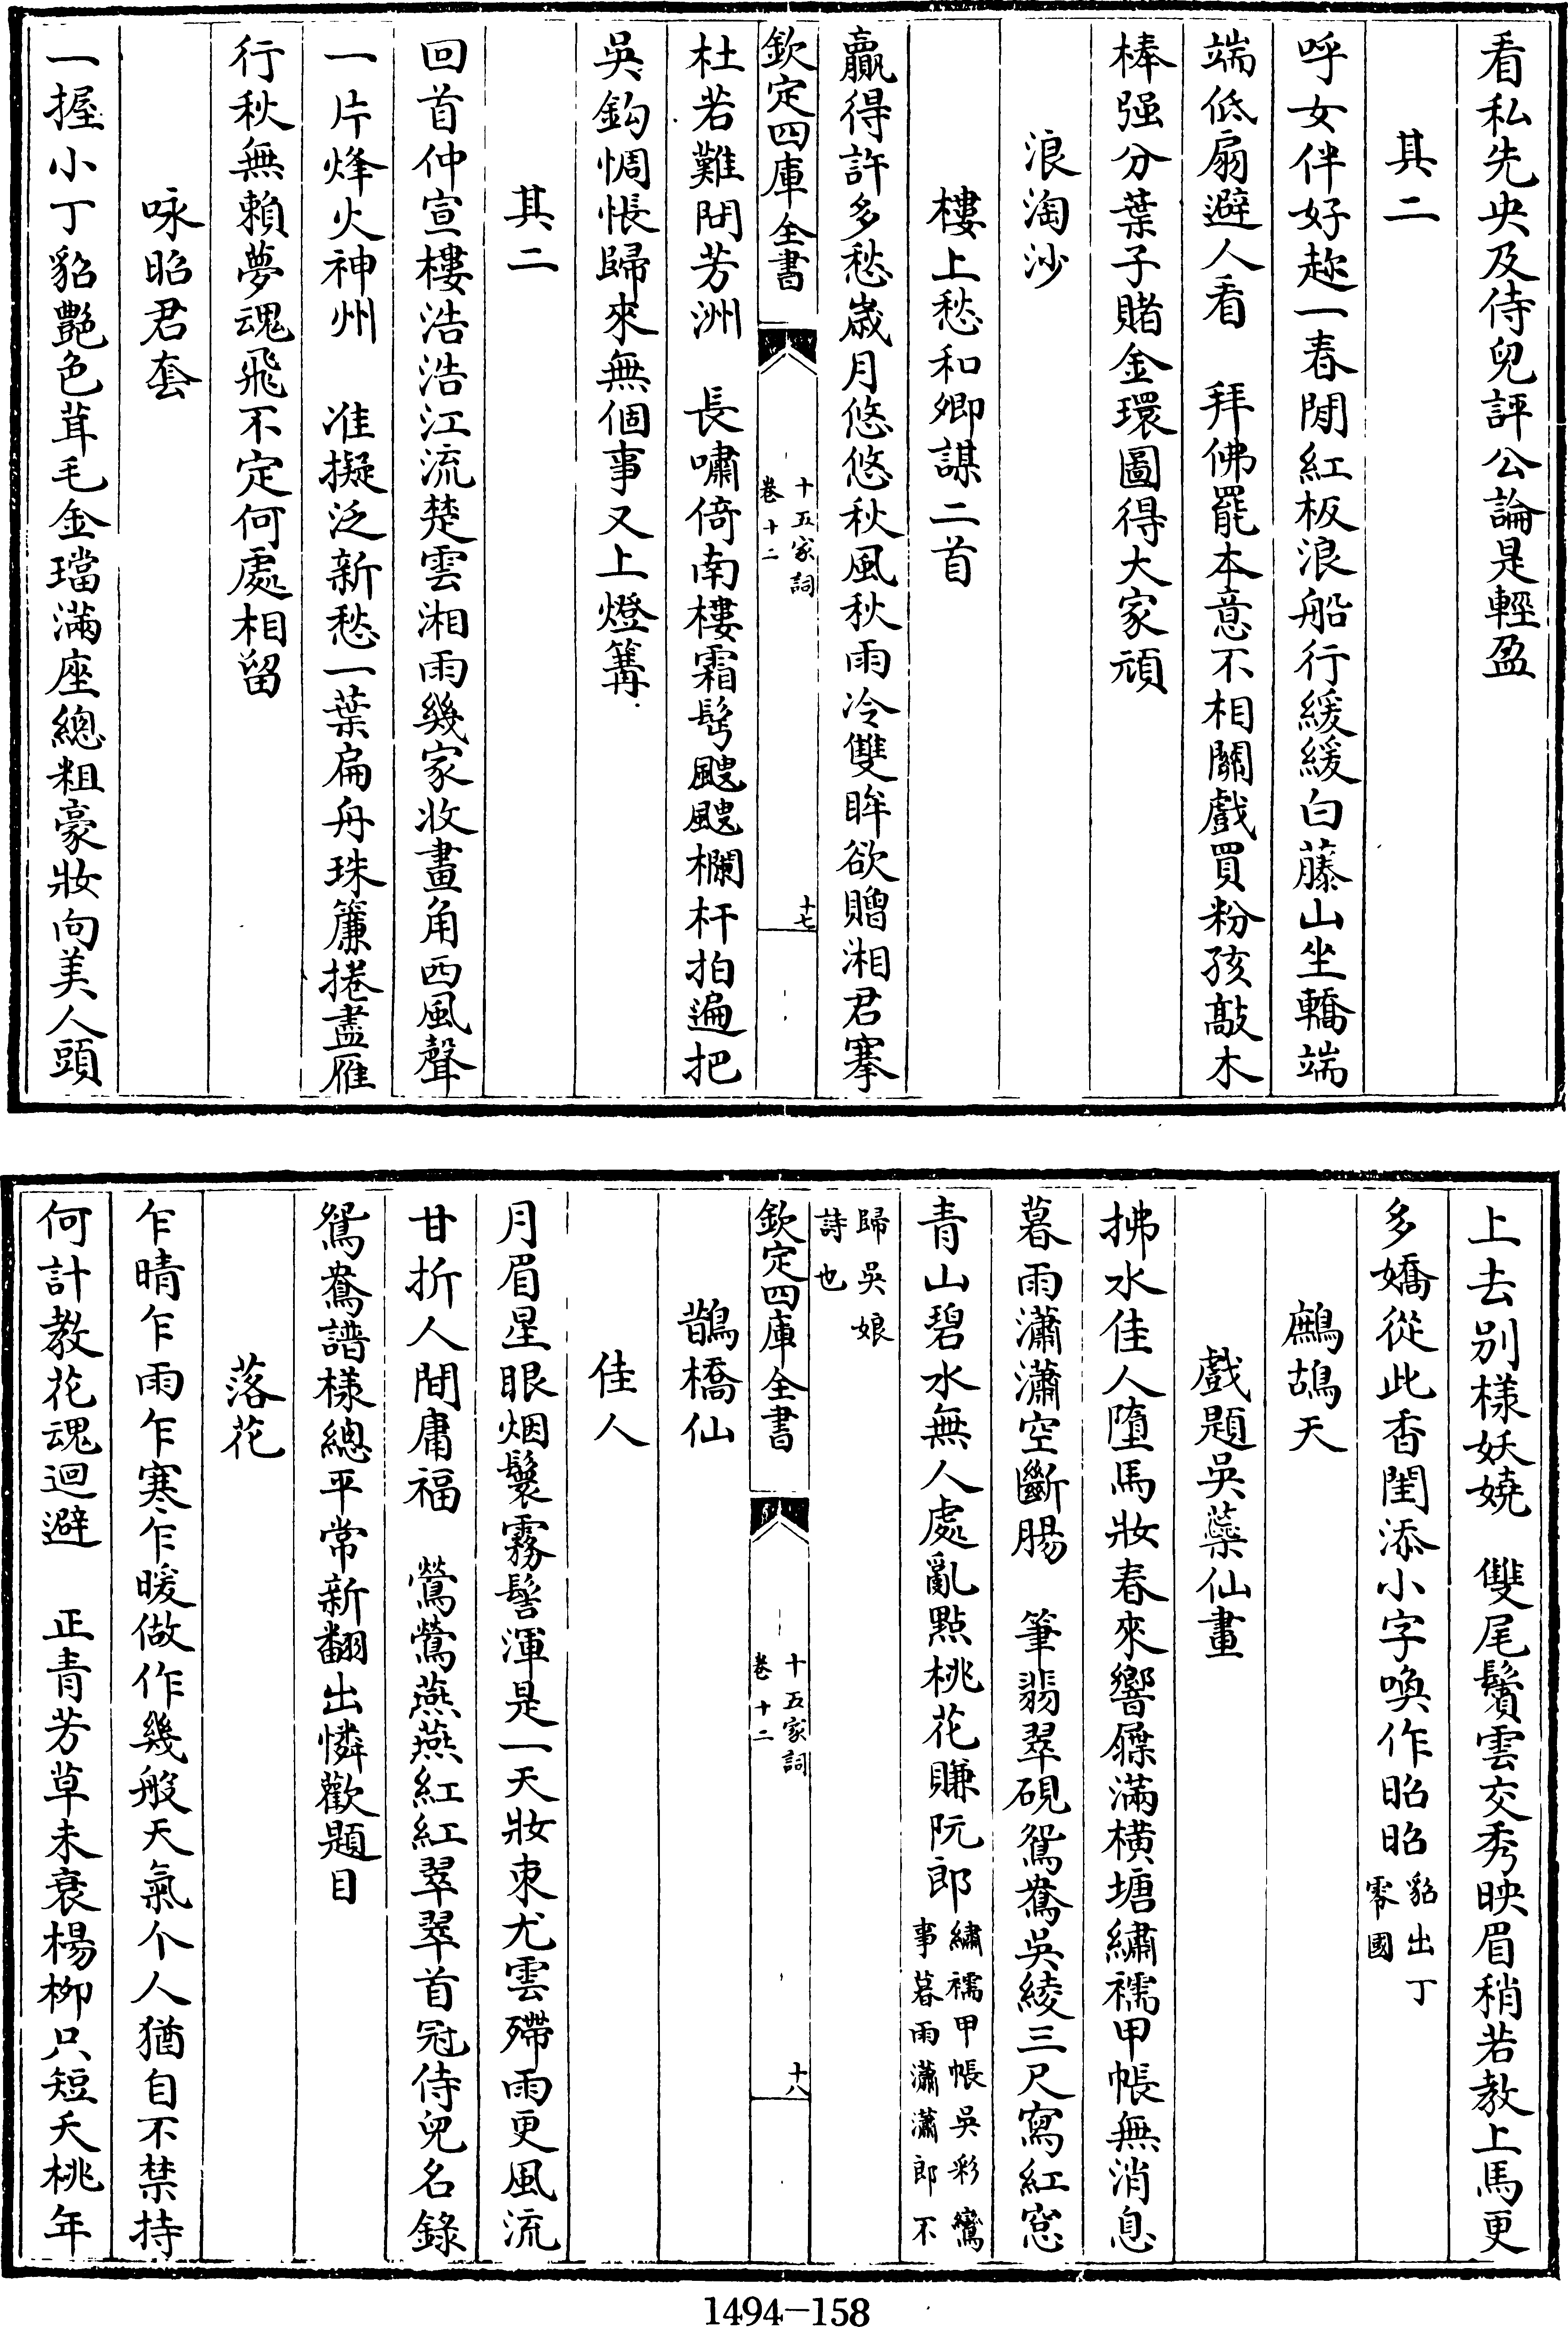 看私先央及侍兒評公論是輕盈
其二
呼女伴好趂一春閒紅板浪船行緩緩白藤山坐轎端
端低扇避人看　拜佛罷本意不相關戲買粉孩敲木
棒强分葉子賭金環圖得大家頑
浪淘沙
樓上愁和卿謀二首
贏得許多愁歲月悠悠秋風秋雨冷雙眸欲贈湘君搴
欽定四庫全書
十五家詞
卷十二
十七
杜若難問芳洲　長嘯倚南樓霜髩颼颼欄杆拍遍把
吳鈎惆悵歸來無個事又上燈篝
其二
回首仲宣樓浩浩江流楚雲湘雨幾家收畫角西風聲
一片烽火神州　准擬泛新愁一葉扁舟珠簾捲盡雁
行秋無賴夢魂飛不定何處相留
咏昭君套
一握小丁貂艷色茸毛金璫滿座總粗豪妝向美人頭
上去别樣妖嬈　雙尾鬢雲交秀映眉稍若教上馬更
多嬌從此香閨添小字喚作昭昭貂出丁
零國
鷓鴣天
戲題吳蘂仙畫
拂水佳人墮馬妝春來響屧滿横塘繡襦甲帳無消息
暮雨瀟瀟空斷腸　筆翡翠硯鴛鴦吳綾三尺寫紅窓
青山碧水無人處亂點桃花賺阮郎繡襦甲帳吳彩鸞
事暮雨瀟瀟郎不
歸吳娘
詩也
欽定四庫全書
十五家詞
卷十二
十八
鵲橋仙
佳人
月眉星眼烟鬟霧髻渾是一天妝束尤雲殢雨更風流
甘折人間庸福　鶯鶯燕燕紅紅翠翠首冠侍兒名錄
鴛鴦譜様總平常新翻出憐歡題目
落花
乍晴乍雨乍寒乍暖做作幾般天氣个人猶自不禁持
何計教花魂迴避　正青芳草未衰楊柳只短夭桃年
1494-158